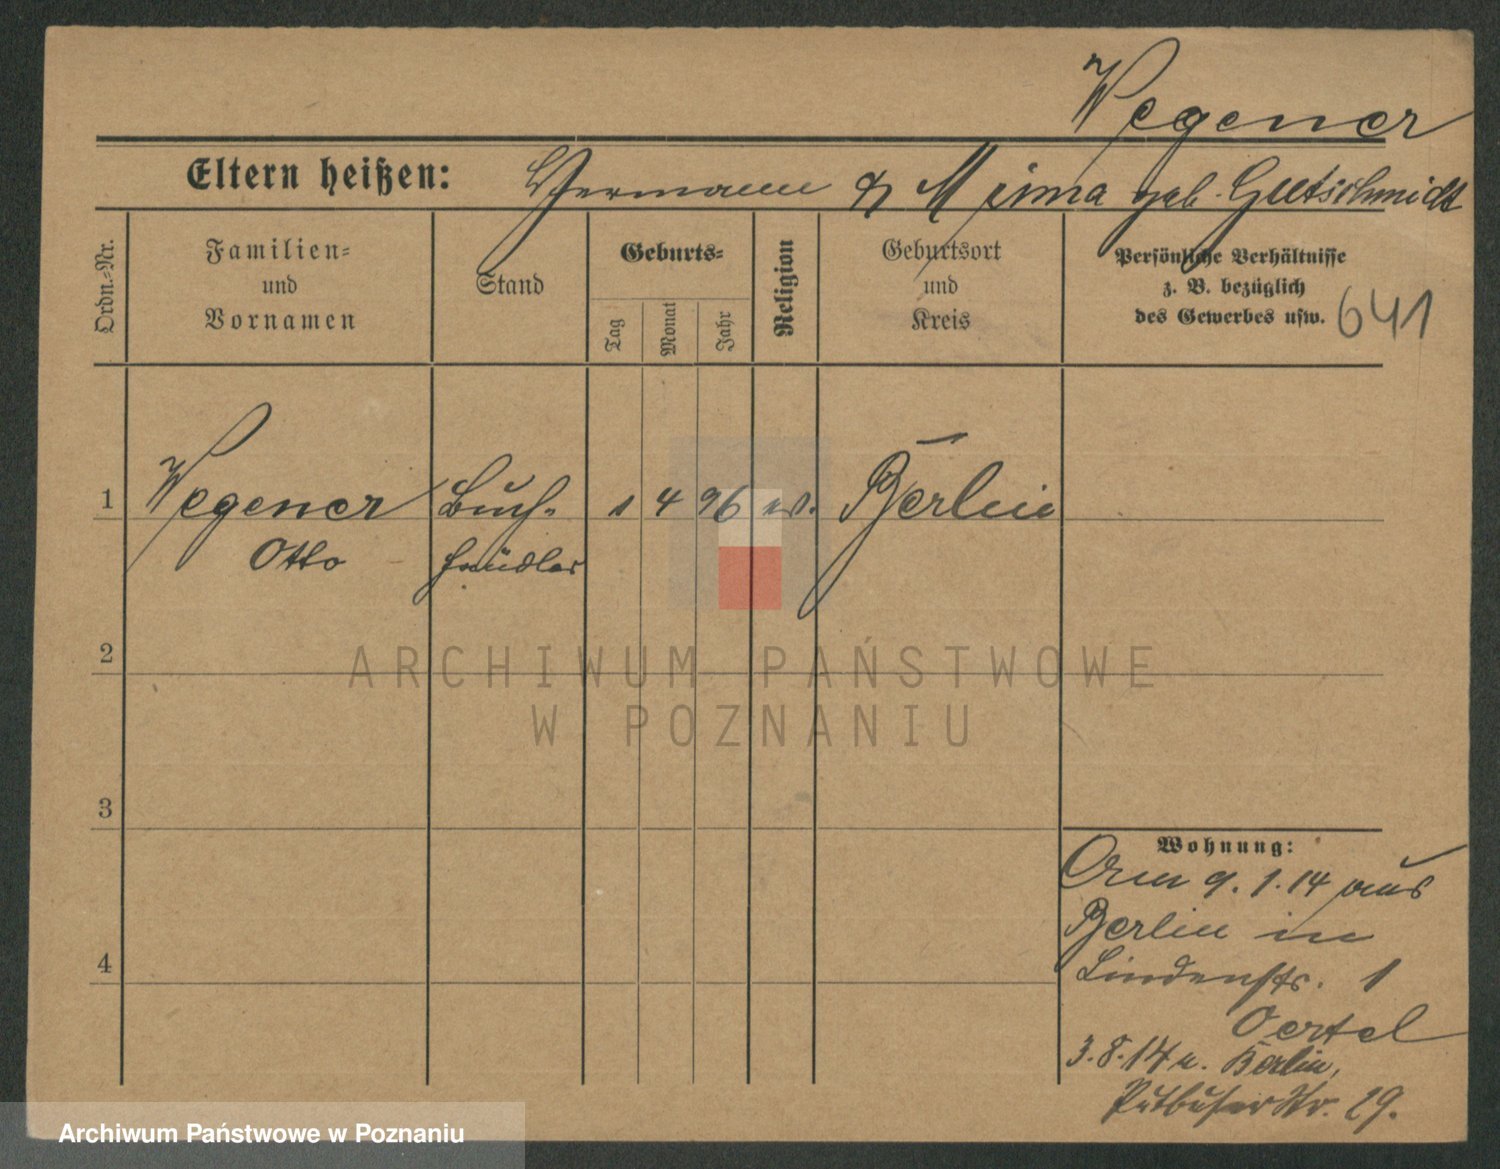 Wegener
Eltern heißen: Hermann & Minna geb. Gutschmidt
Ordn.-Nr.
Familien-
und
Vornamen
Stand
Geburts-
Tag
Monat
Jahr
Religion
Geburtsort
und
Kreis
Persönliche Verhältnisse
z. B. bezüglich
des Gewerbes usw.
641
1 Wegener Buch- 1 4 96 ev. Berlin
Otto händler
2
3
4
Wohnung:
9.1.14 aus
Berlin in
Lindenstr. 1
Oertel
3.8.14 n. Berlin,
Putbuser Str. 29.
ARCHIWUM PAŃSTWOWE
W POZNANIU
Archiwum Państwowe w Poznaniu